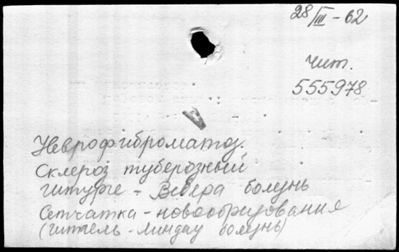 28/III - 62
Чит.
555978
Неврофиброматоз.
Склероз туберозный
Штурге - Вебера болзнь
Сетчатка - новообразования
(Гиппель-Линдау болзнь)